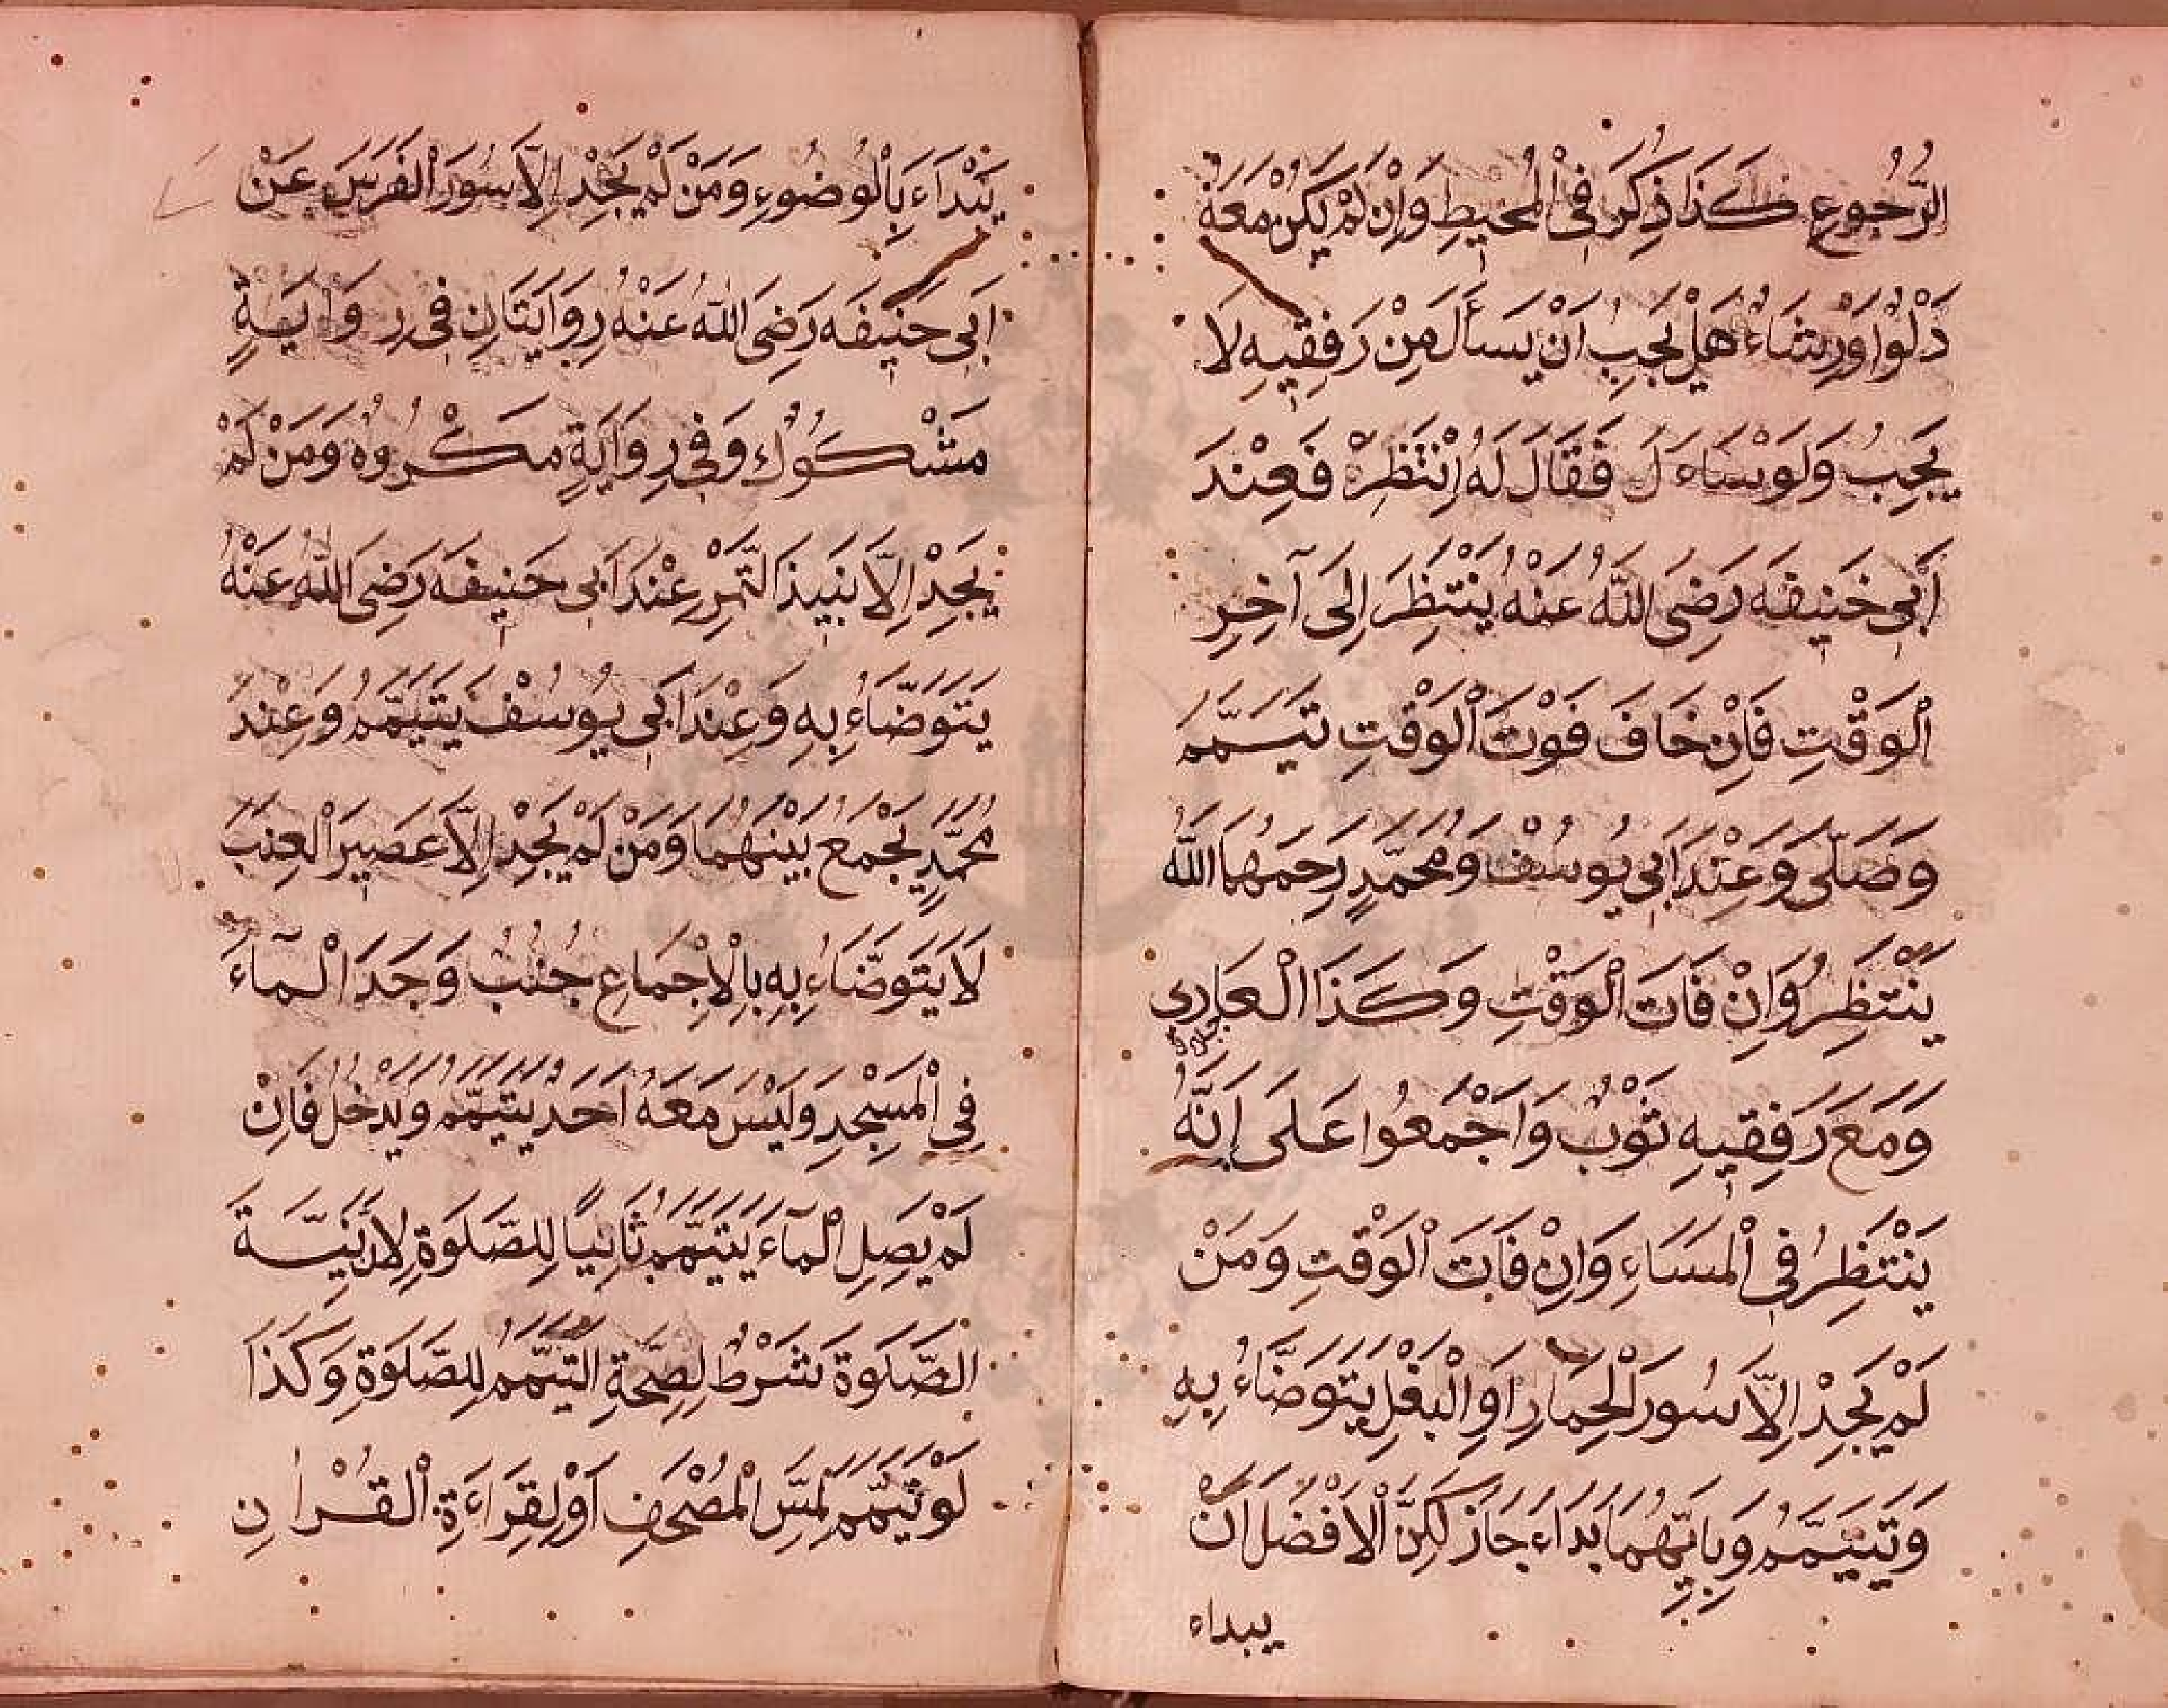 الرُّجُوعِ كَذَا ذُكِرَ فِي الْمُحِيطِ وَاِنْ لَمْ يَكُنْ مَعَهُ
دَلْوٌ اَوْ رِشَاءٌ هَلْ يَجِبُ اَنْ يَسْأَلَ مِنْ رَفِقِيهِ لَا
يَجِبُ وَلَوْ سَاءَلَ فَقَالَ لَهُ اِنْتَظِرْ فَعِنْدَ
اَبِى حَنِيفَه رَضِىَ اللّٰهُ عَنْهُ يَنْتَظِرَ اِلَى آخِرِ
الْوَقْتِ فَاِنْ خَافَ فَوْتَ الْوَقْتِ تَيَمَّمَ
وَصَلّٰى وَعِنْدَ اَبِى يُوسُفْ وَمُحَمَّدٍ رَحِمَهُمَا اللّٰهُ
يَنْتَظِرُ وَاِنْ فَاتَ الْوَقْتِ وَكَذَا الْعَارِى
وَمَعَ رَفِقِيهِ ثَوْبٌ وَاَجْمَعُوا عَلَى اِنَّهُ
يَنْتَظِرُ فِى الْمَسَاءِ وَاِنْ فَاتَ الْوَقْتِ وَمَنْ
لَمْ يَجِدْ اِلَّا سُورَ الْحِمَارِ اَوِ الْبَغْلِ يَتَوَضَّاءُ بِهِ
وَتَيَمَّمُ وَبِاَيِّهِمَا بَدَاءَ جَازَ لٰكِنَّ الْاَفْضَلَ اَنْ
يبداء
يَبْدَاءَ بِالْوُضُوءِ وَمَنْ لَمْ يَجِدْ اِلَّا سُورَ الْفَرَسِ عَنْ
اَبِى حَنِيفَه رَضِىَ اللّٰهُ عَنْهُ رِوَايَتَانِ فِى رِوَايَةٍ
مَشْكُوكٌ وَفِى رِوَايَةٍ مَكْرُوهٌ وَمَنْ لَمْ
يَجِدْ اِلَّا نَبِيذَ التَّمْرِ عِنْدَ اَبِى حَنِيفَه رَضِىَ اللّٰهُ عَنْهُ
يَتَوَضَّاءُ بِهِ وَعِنْدَ اَبِى يُوسُفْ يَتَيَمَّمُ وَعِنْدَ
مُحَمَّدٍ يَجْمَعُ بَيْنَهُمَا وَمَنْ لَمْ يَجِدْ اِلَّا عَصِيرَ الْعِنَبِ
لَا يَتَوَضَّاءُ بِهِ بِالْاِجْمَاعِ جُنُبٌ وَجَدَ الْمَآءَ
فِى الْمَسْجِدِ وَلَيْسَ مَعَهُ اَحَدٌ يَتَيَمَّمُ وَيَدْخُلُ فَاِنْ
لَمْ يَصِلِ الْمَآءَ يَتَيَمَّمُ ثَانِيًا لِلصَّلٰوةِ لِاَنَّ نِيَّةَ
الصَّلٰوةَ شَرْطٌ لِصِحَّةِ التَّيَمُّمِ لِلصَّلٰوةِ وَكَذَا
لَوْ تَيَمَّمَ لِمَسِّ الْمُصْحَفِ اَوْ لِقِرَاءَةِ الْقُرْاٰنِ